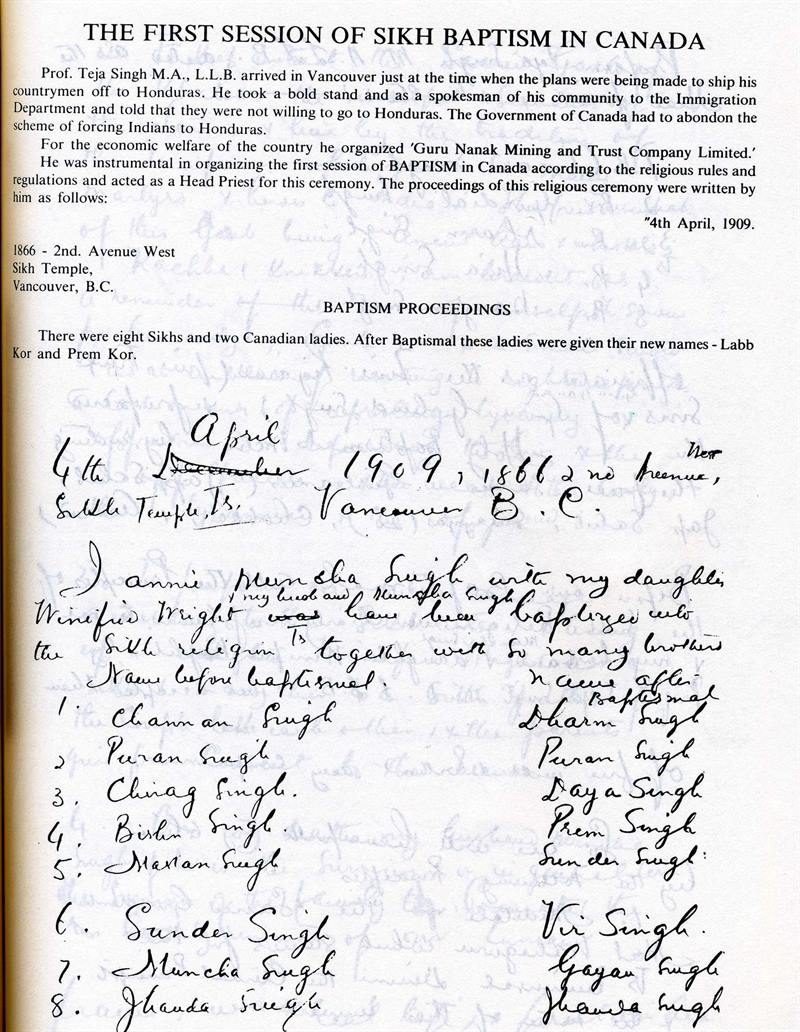 THE FIRST SESSION OF SIKH BAPTISM IN CANADA
Prof. Teja Singh M.A., L.L.B. arrived in Vancouver just at the time when the plans were being made to ship his
countrymen off to Honduras. He took a bold stand and as a spokesman of his community to the Immigration
Department and told that they were not willing to go to Honduras. The Government of Canada had to abondon the
scheme of forcing Indians to Honduras.
For the economic welfare of the country he organized 'Guru Nanak Mining and Trust Company Limited.'
He was instrumental in organizing the first session of BAPTISM in Canada according to the religious rules and
regulations and acted as a Head Priest for this ceremony. The proceedings of this religious ceremony were written by
him as follows:
"4th April, 1909.
1866 - 2nd. Avenue West
Sikh Temple,
Vancouver, B.C.
BAPTISM PROCEEDINGS
There were eight Sikhs and two Canadian ladies. After Baptismal these ladies were given their new names - Labb
Kor and Prem Kor.
April
4th December 1909, 1866 2nd Avenue, West
Sikh Temple, Vancouver B.C.
I annie Munsha Singh with my daughter
my husband Munsha Singh
Winifred Wright was have been baptized into
the Sikh religion together with so many brothers
Name before baptismal. name after
Baptismal
1. Channan Singh Dharm Singh
2 Puran Singh Puran Singh
3. Chirag Singh. Daya Singh
4. Bishn Singh. Prem Singh
5. Mastan Singh Sunder Singh
6. Sunder Singh Vir Singh.
7. Muncha Singh Gayan Singh
8. Jhanda Singh Jhanda Singh